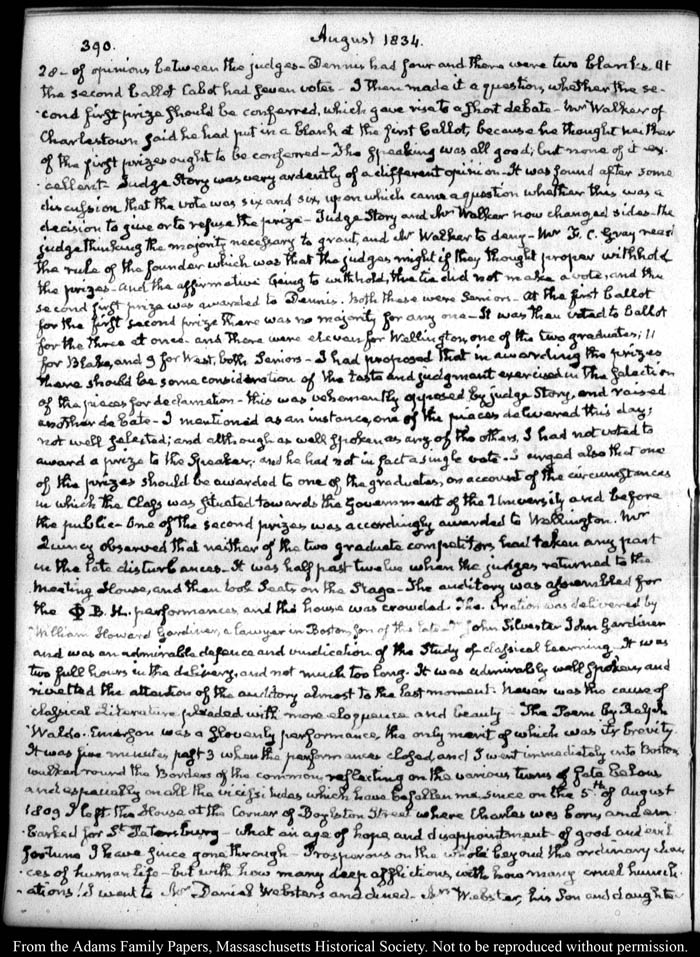 390.
August 1834.
28- of opinions between the judges- Dennis had four and there were two blanks. At
the second ballot Cabot had seven votes- I then made it a question, whether the se-
cond first prize should be conferred, which gave rise to a short debate- Mr Walker of
Charlestown said he had put in a blank at the first ballot, because he thought neither
of the first prizes ought to be conferred- The speaking was all good; but none of it ex-
cellent- Judge Story was very ardently of a different opinion- It was found after some
discussion that the vote was six and six, upon which came a question whether this was a
decision to give or to refuse the prize- Judge Story and Mr Walker now changed sides- the
judge thinking the majority necessary to grant, and Mr Walker to deny- Mr F. C. Gray read
the rule of the founder which was that the judges might if they thought proper withhold
the prizes- and the affirmative being to withhold, the tie did not make a vote, and the
second first prize was awarded to Dennis. Both these were Seniors- At the first ballot
for the first second prize there was no majority for any one- It was then voted to ballot
for the three at once- and there were eleven for Wellington, one of the two graduates; 11
for Blake, and 9 for West, both Seniors- I had proposed that in awarding the prizes
there should be some consideration of the taste and judgment exercised in the selection
of the pieces for declamation- this was vehemently opposed by judge Story, and raised
another debate- I mentioned as an instance, one of the pieces delivered this day;
not well selected; and although as well spoken as any of the others, I had not voted to
award a prize to the Speaker, and he had not in fact a single vote- I urged also that one
of the prizes should be awarded to one of the graduates, on account of the circumstances
in which the Class was situated towards the Government of the University and before
the public- One of the second prizes was accordingly awarded to Wellington. Mr
Quincy observed that neither of the two graduate competitors, had taken any part
in the late disturbances- It was half past twelve when the judges returned to the
Meeting House, and then took Seats on the Stage- The auditory was assembled for
the Φ B. K. performances, and the house was crowded. The Oration was delivered by
William Howard Gardiner, a lawyer in Boston, son of the late John Silvester John Gardiner
and was an admirable defence and vindication of the Study of classical Learning. It was
two full hours in the delivery, and not much too long. It was admirably well spoken, and
rivetted the attention of the auditory almost to the last moment. Never was the cause of
classical Literature pleaded with more eloquence and beauty- The Poem by Ralph
Waldo Emerson was a slovenly performance the only merit of which was its brevity.
It was five minutes past 3 when the performances closed, and I went immediately into Boston
walked round the Borders of the common, reflecting on the various turns of fate below
and especially on all the vicissitudes which have befallen me, since on the 5th of August
1809 I left the House at the Corner of Boylston Street where Charles was born, and em-
barked for St Petersburg- what an age of hope and disappointment- of good and evil
fortune I have since gone through- Prosperous on the whole beyond the ordinary chan-
ces of human life- but with how many deep afflictions, with how many cruel humili-
ations! I went to Mr Daniel Webster's and dined- Mrs Webster, his Son and daughter
From the Adams Family Papers, Massachusetts Historical Society. Not to be reproduced without permission.